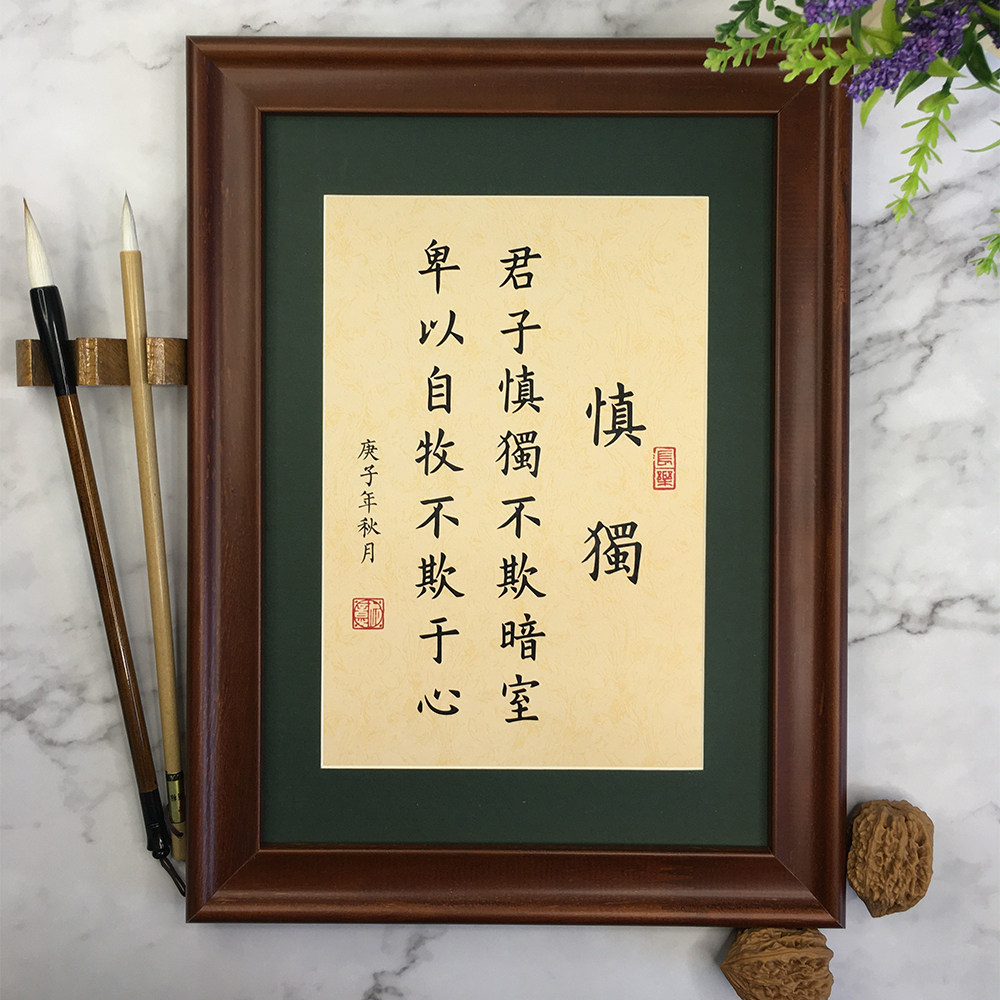 慎獨
長樂
君子慎獨不欺暗室
卑以自牧不欺于心
庚子年秋月